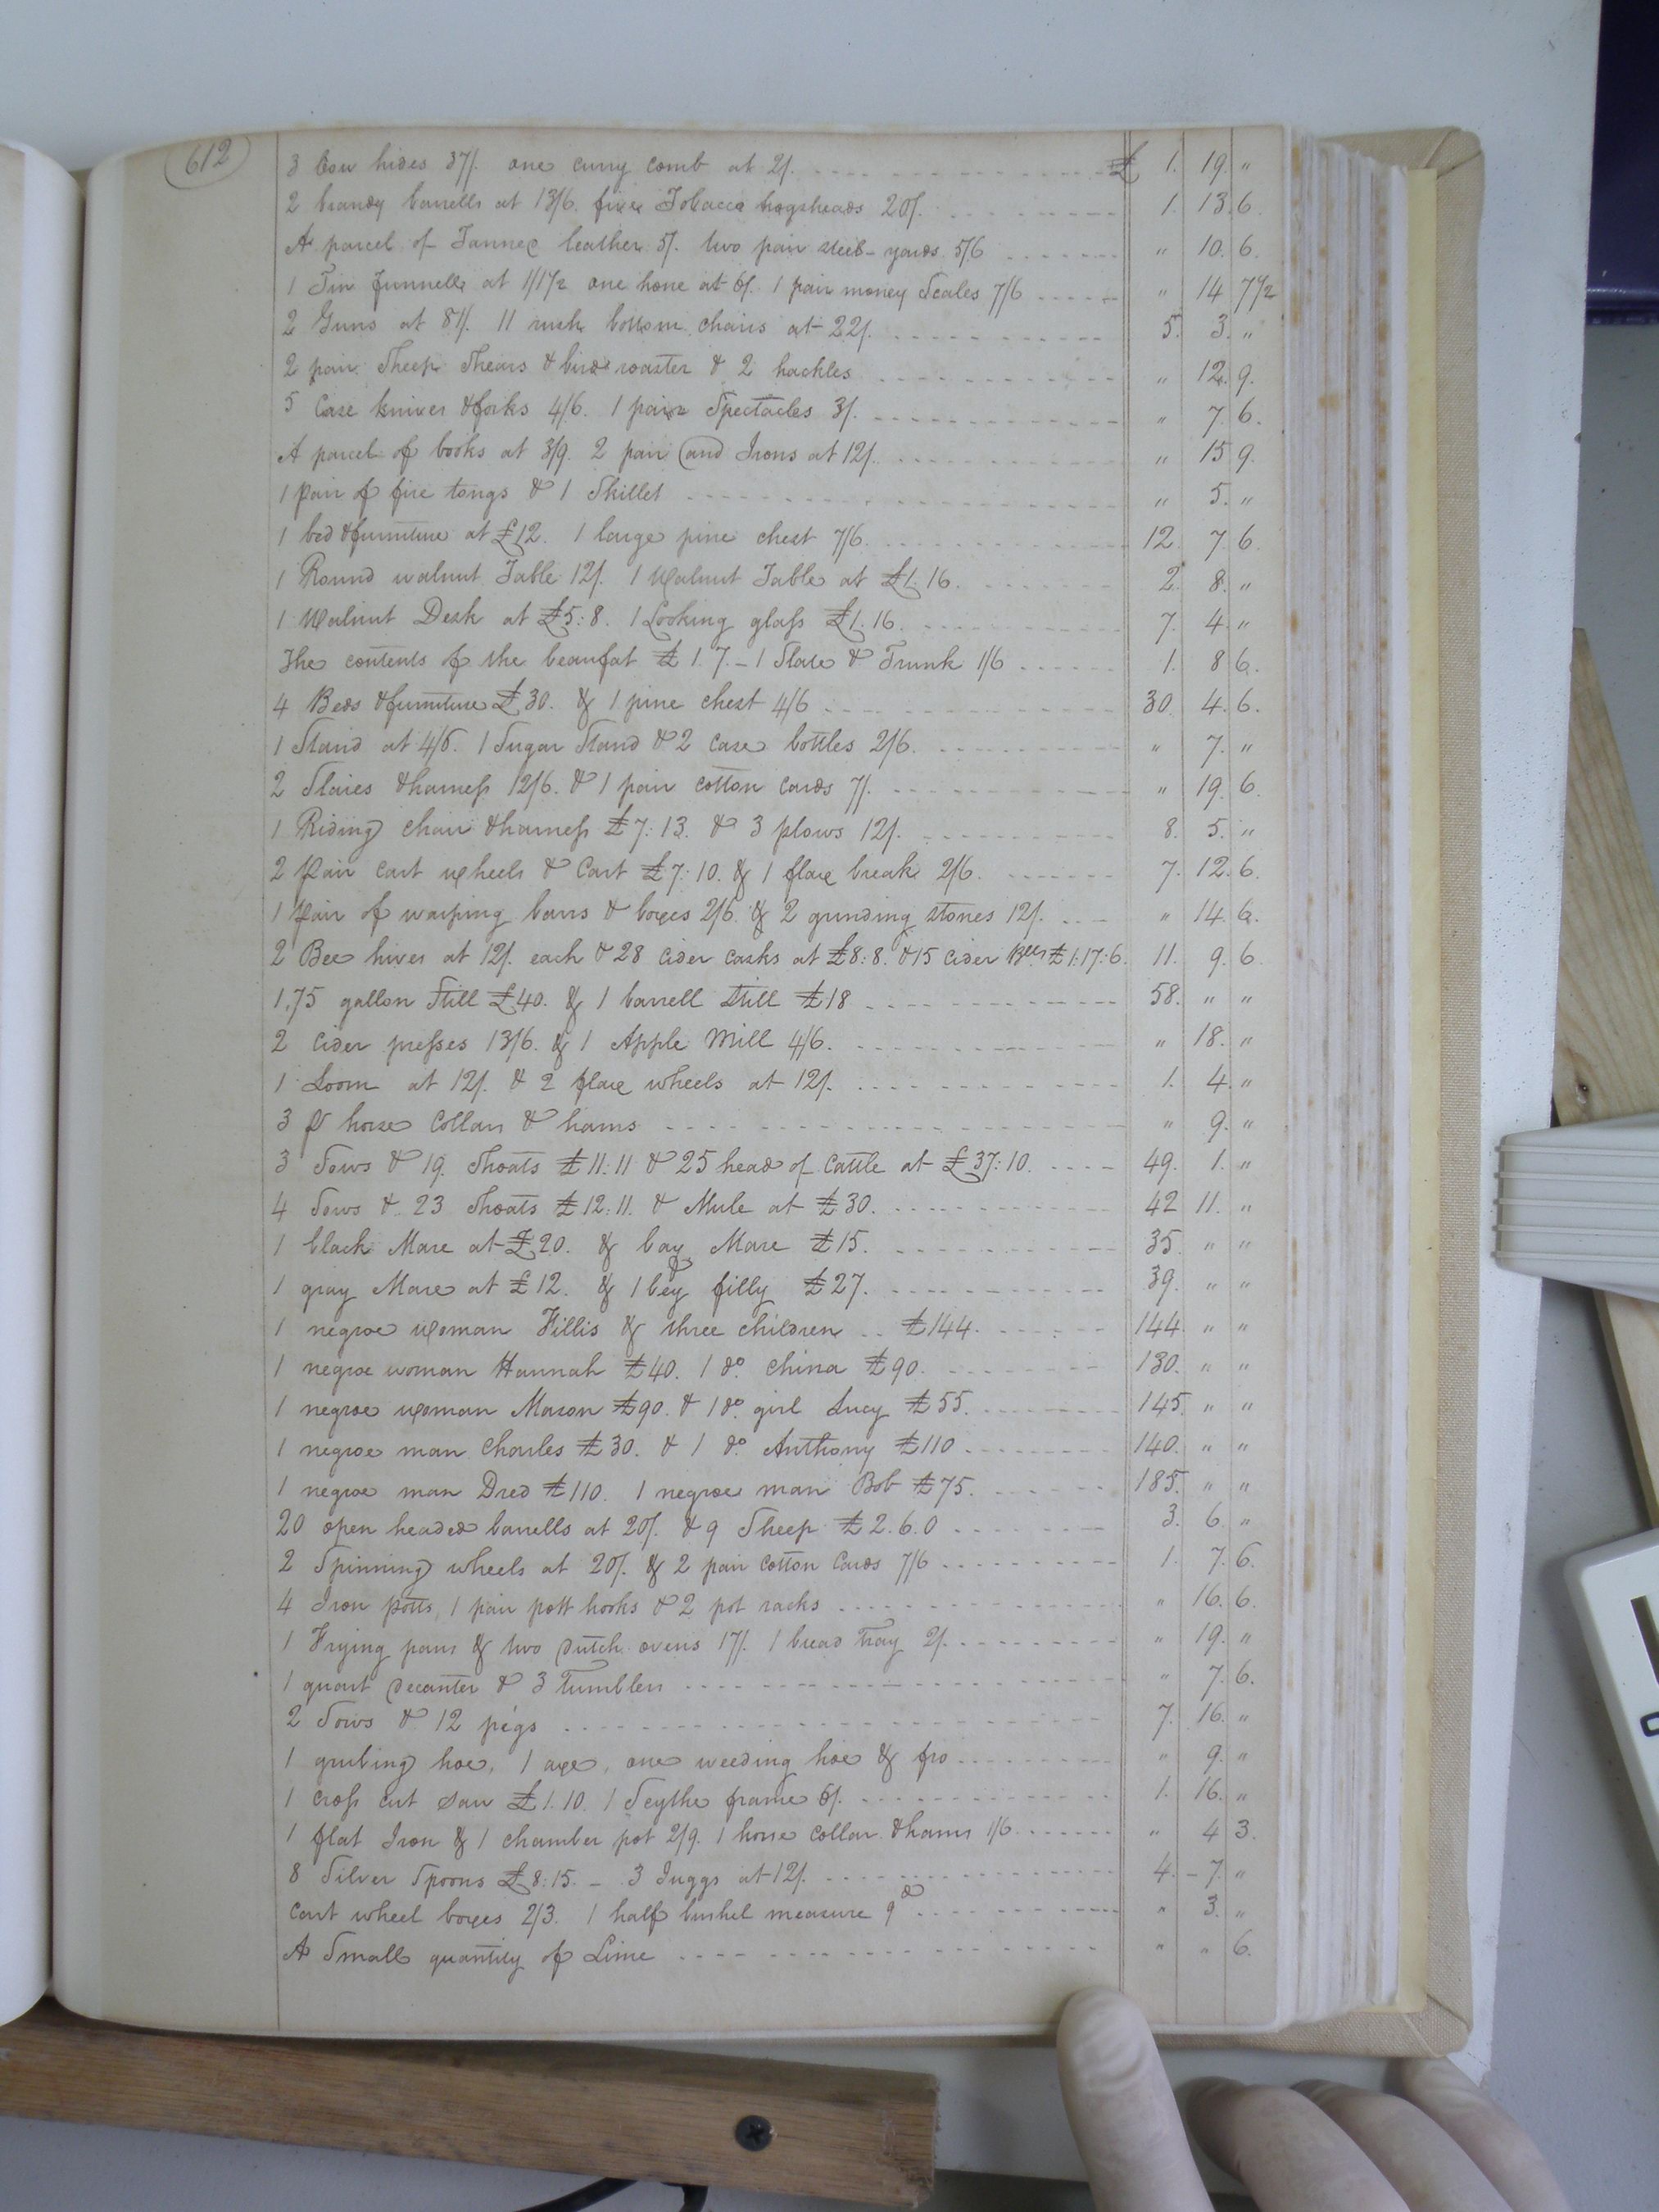 612
3 Cow hides 37/. one curry comb at 2/. £ 1. 19. "
2 brandy barrells at 13/6. five Tobacco hogsheads 20/. 1. 13. 6.
A parcel of Tanned leather 5/. two pair steel-yards 5/6 " 10. 6.
1 Tin funnell at 1/1 1/2 one hone at 6/. 1 pair money Scales 7/6 " 14 7 1/2
2 Guns at 81/. 11 rush bottom chairs at 22/. 5. 3. "
2 pair Sheep Shears & bird roaster & 2 hackles " 12. 9.
5 Case knives & forks 4/6. 1 pair Spectacles 3/. " 7. 6.
A parcel of books at 3/9. 2 pair and Irons at 12/. " 15 9.
1 pair of fire tongs & 1 Skillet " 5. "
1 bed & furniture at £12. 1 large pine chest 7/6. 12. 7. 6
1 Round walnut Table 12/. 1 Walnut Table at £1. 16. 2. 8. "
1 Walnut Desk at £5:8. 1 Looking glass £1. 16. 7. 4. "
The contents of the beaufat £1. 7. – 1 Slate & Trunk 1/6 1. 8 6.
4 Beds & furniture £30. & 1 pine chest 4/6 30. 4. 6.
1 Stand at 4/6. 1 Sugar Stand & 2 case bottles 2/6. " 7. "
2 Slaies & harness 12/6. & 1 pair cotton cards 7/. " 19. 6.
1 Riding chair & harness £7:13. & 3 plows 12/. 8. 5. "
2 Pair cart wheels & Cart £7:10. & 1 flax break 2/6. 7. 12. 6.
1 Pair of warping bars & boxes 2/6. & 2 grinding stones 12/. " 14. 6.
2 Bee hives at 12/. each & 28 cider casks at £8:8. & 15 cider Blls £1:17:6. 11. 9. 6
1.75 gallon Still £40. & 1 barrell still £18 58. " "
2 cider presses 13/6. & 1 Apple Mill 4/6. " 18. "
1 Loom at 12/. & 2 flax wheels at 12/. 1. 4. "
3 pr horse Collars & hams " 9. "
3 Sows & 19. Shoats £11:11 & 25 head of Cattle at £37:10. 49. 1. "
4 Sows & 23 Shoats £12:11. & Mule at £30. 42 11. "
1 black Mare at £20. & bay Mare £15. 35. " "
1 gray Mare at £12. & 1 bay filly £27. 39. " "
1 negroe woman Fillis & three children .. £144. 144. " "
1 negroe woman Hannah £40. 1 do. China £90. 130. " "
1 negroe woman Mason £90. & 1 do. girl Lucy £55. 145. " "
1 negroe man Charles £30. & 1 do. Anthony £110 140. " "
1 negroe man Dred £110. 1 negroe man Bob £75. 185. " "
20 open headed barrells at 20/. & 9 Sheep £2.6.0 3. 6. "
2 Spinning wheels at 20/. & 2 pair Cotton Cards 7/6 1. 7. 6.
4 Iron potts, 1 pair pott hooks & 2 pot racks " 16. 6.
1 Frying pan & two Dutch ovens 17/. 1 bread Tray 2/. " 19. "
1 quart Decanter & 3 Tumblers " 7. 6.
2 Sows & 12 pigs 7. 16. "
1 grubing hoe, 1 axe, one weeding hoe & fro " 9. "
1 cross cut saw £1.10. 1 Scythe frame 6/. 1. 16. "
1 flat Iron & 1 chamber pot 2/9. 1 horse collar & hams 1/6 " 4 3.
8 Silver Spoons £8:15. – 3 Juggs at 12/. 4. – 7. "
Cart wheel boxes 2/3. 1 half bushel measure 9d " 3. "
A Small quantity of Lime " " 6.